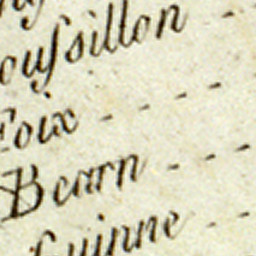 oussillon - -
Foix - - - -
Bearn - - -
Guinne - -